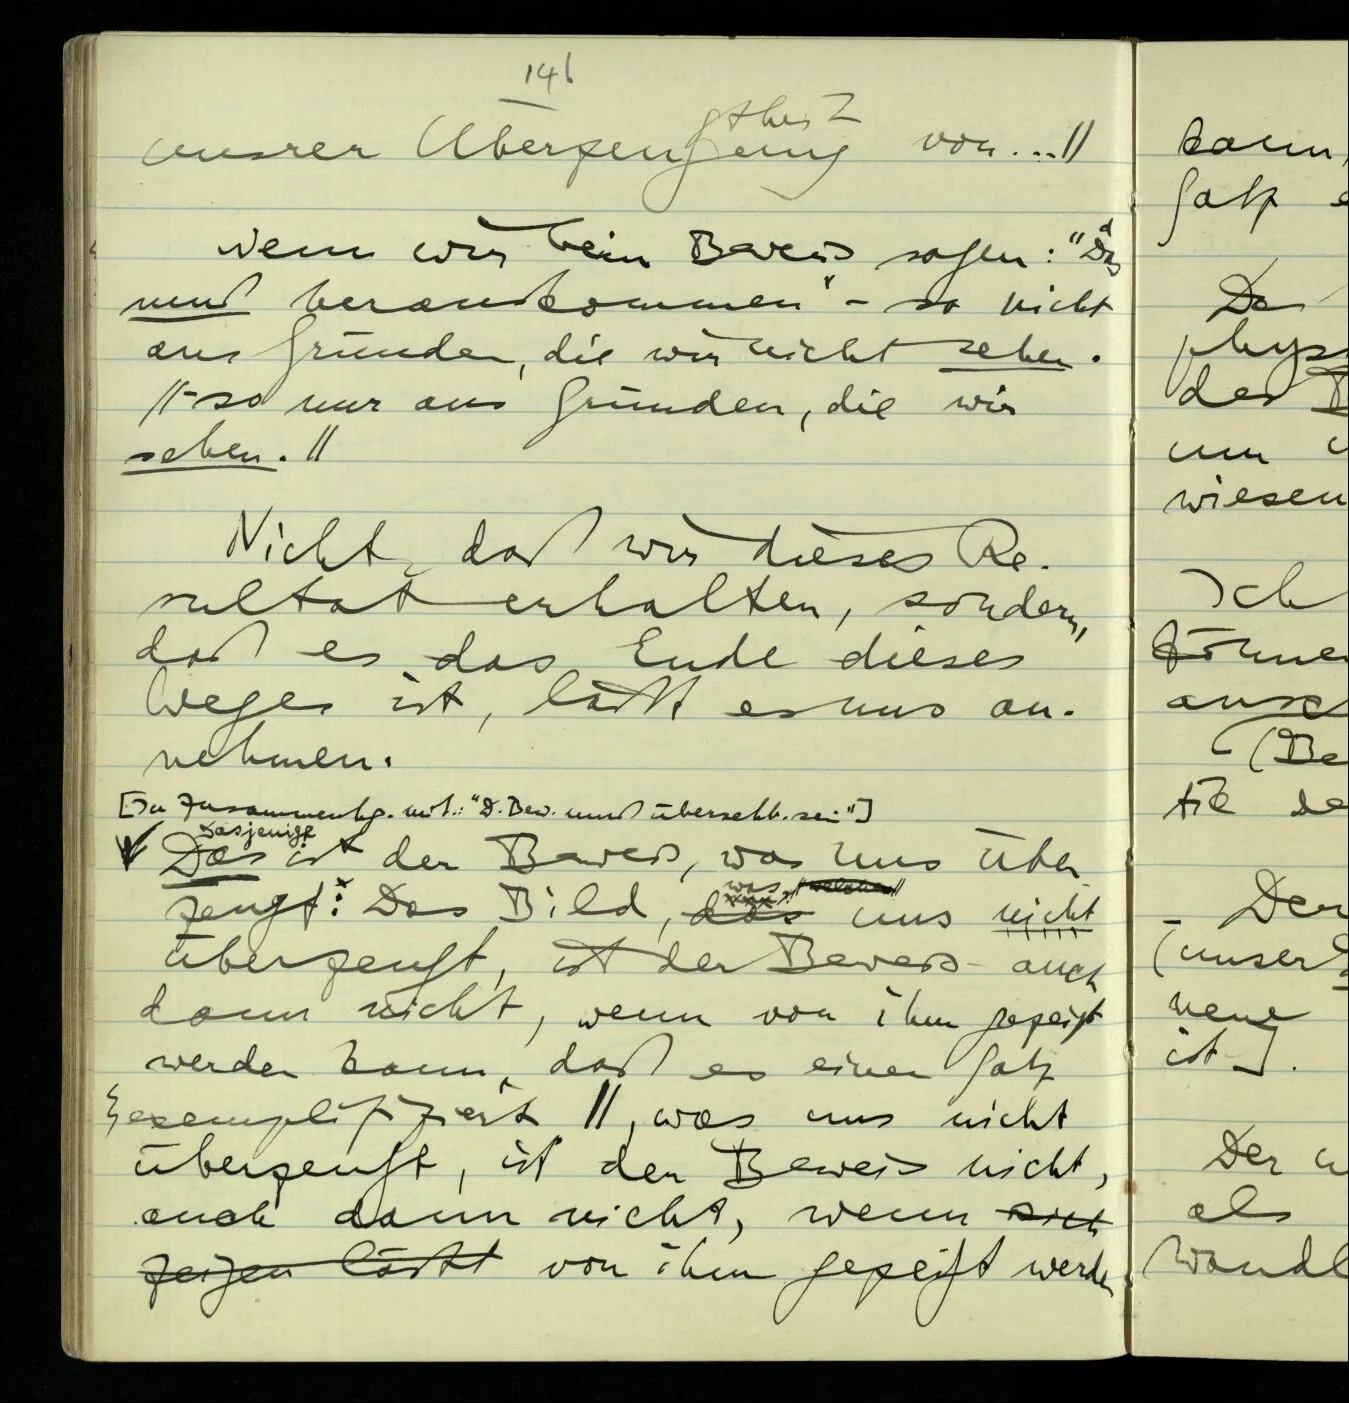 146
unsrer Überzeugung
gtheit
von...//
Wenn wir beim Beweis sagen: "Das
muß herauskommen" – so nicht
aus Gründen, die wir nicht sehen.
//– so nur aus Gründen, die wir
sehen.//
Nicht, daß wir dieses Re-
sultat erhalten, sondern,
daß es das Ende dieses
Weges ist, läßt es uns an-
nehmen.
[In Zusammenhg. mit: "D. Bew. muß übersehb. sein"]
Dasjenige
✓ Das ist der Beweis, was uns über-
was //welches//
zeugt: Das Bild, das uns nicht
überzeugt, ist der Beweis auch
dann nicht, wenn von ihm gezeigt
werden kann, daß es einen Satz
exemplifiziert //, was uns nicht
überzeugt, ist der Beweis nicht,
auch dann nicht, wenn sich
zeigen läßt von ihm gezeigt werden
kann,
Satz
De
phys
des B
um
wiesen
Ich
können
(Be
tik de
Der
(unser
neue
ist].
Der
als
Wandl